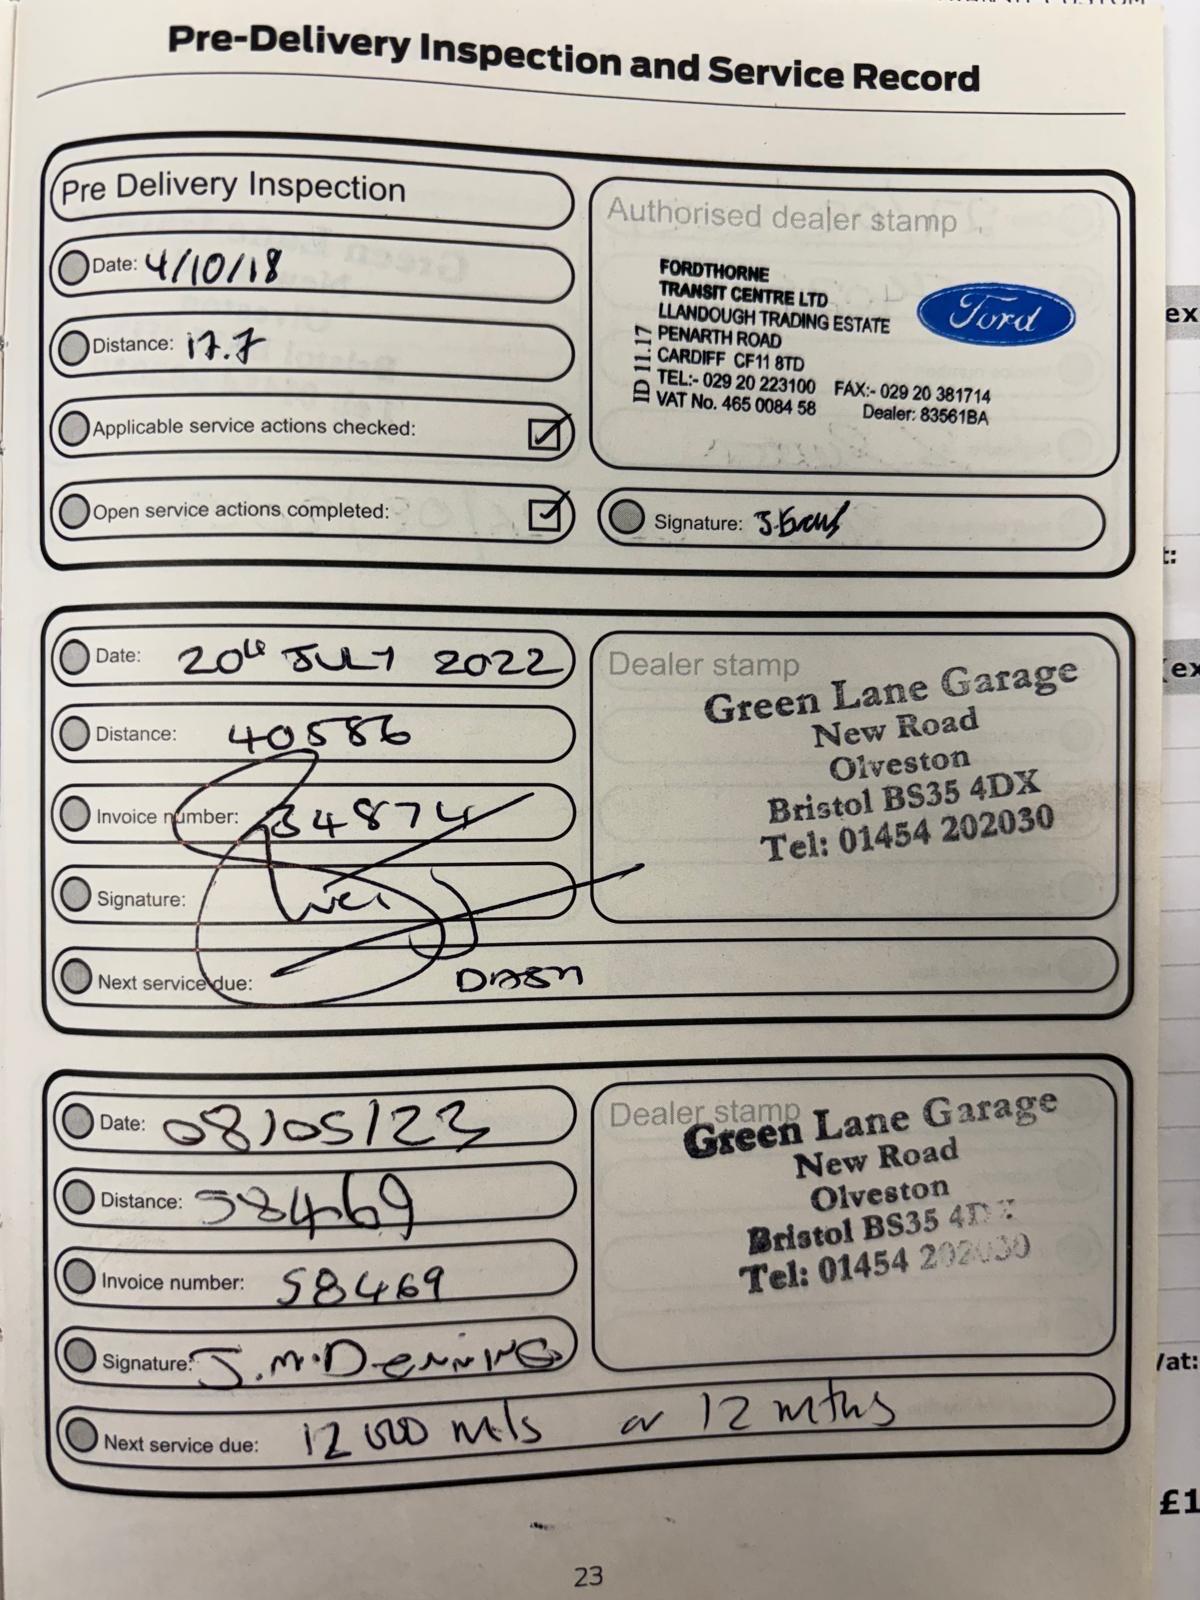 Pre-Delivery Inspection and Service Record
Pre Delivery Inspection
Date: 4/10/18
Distance: 17.7
Applicable service actions checked:
Open service actions completed:
Authorised dealer stamp
FORDTHORNE
TRANSIT CENTRE LTD
LLANDOUGH TRADING ESTATE
PENARTH ROAD
CARDIFF CF11 8TD
TEL:- 029 20 223100 FAX:- 029 20 381714
VAT No. 465 0084 58 Dealer: 83561BA
ID 11.17
Ford
Signature: J. Evans
Date: 20th JULY 2022
Distance: 40586
Invoice number: 34874
Signature:
Next service due: DASH
Dealer stamp
Green Lane Garage
New Road
Olveston
Bristol BS35 4DX
Tel: 01454 202030
Date: 08/05/23
Distance: 58469
Invoice number: 58469
Signature: J.M.DENNING
Next service due: 12000 mls or 12 mths
Dealer stamp
Green Lane Garage
New Road
Olveston
Bristol BS35 4DX
Tel: 01454 202030
23
ex
t:
(ex
Vat:
£1